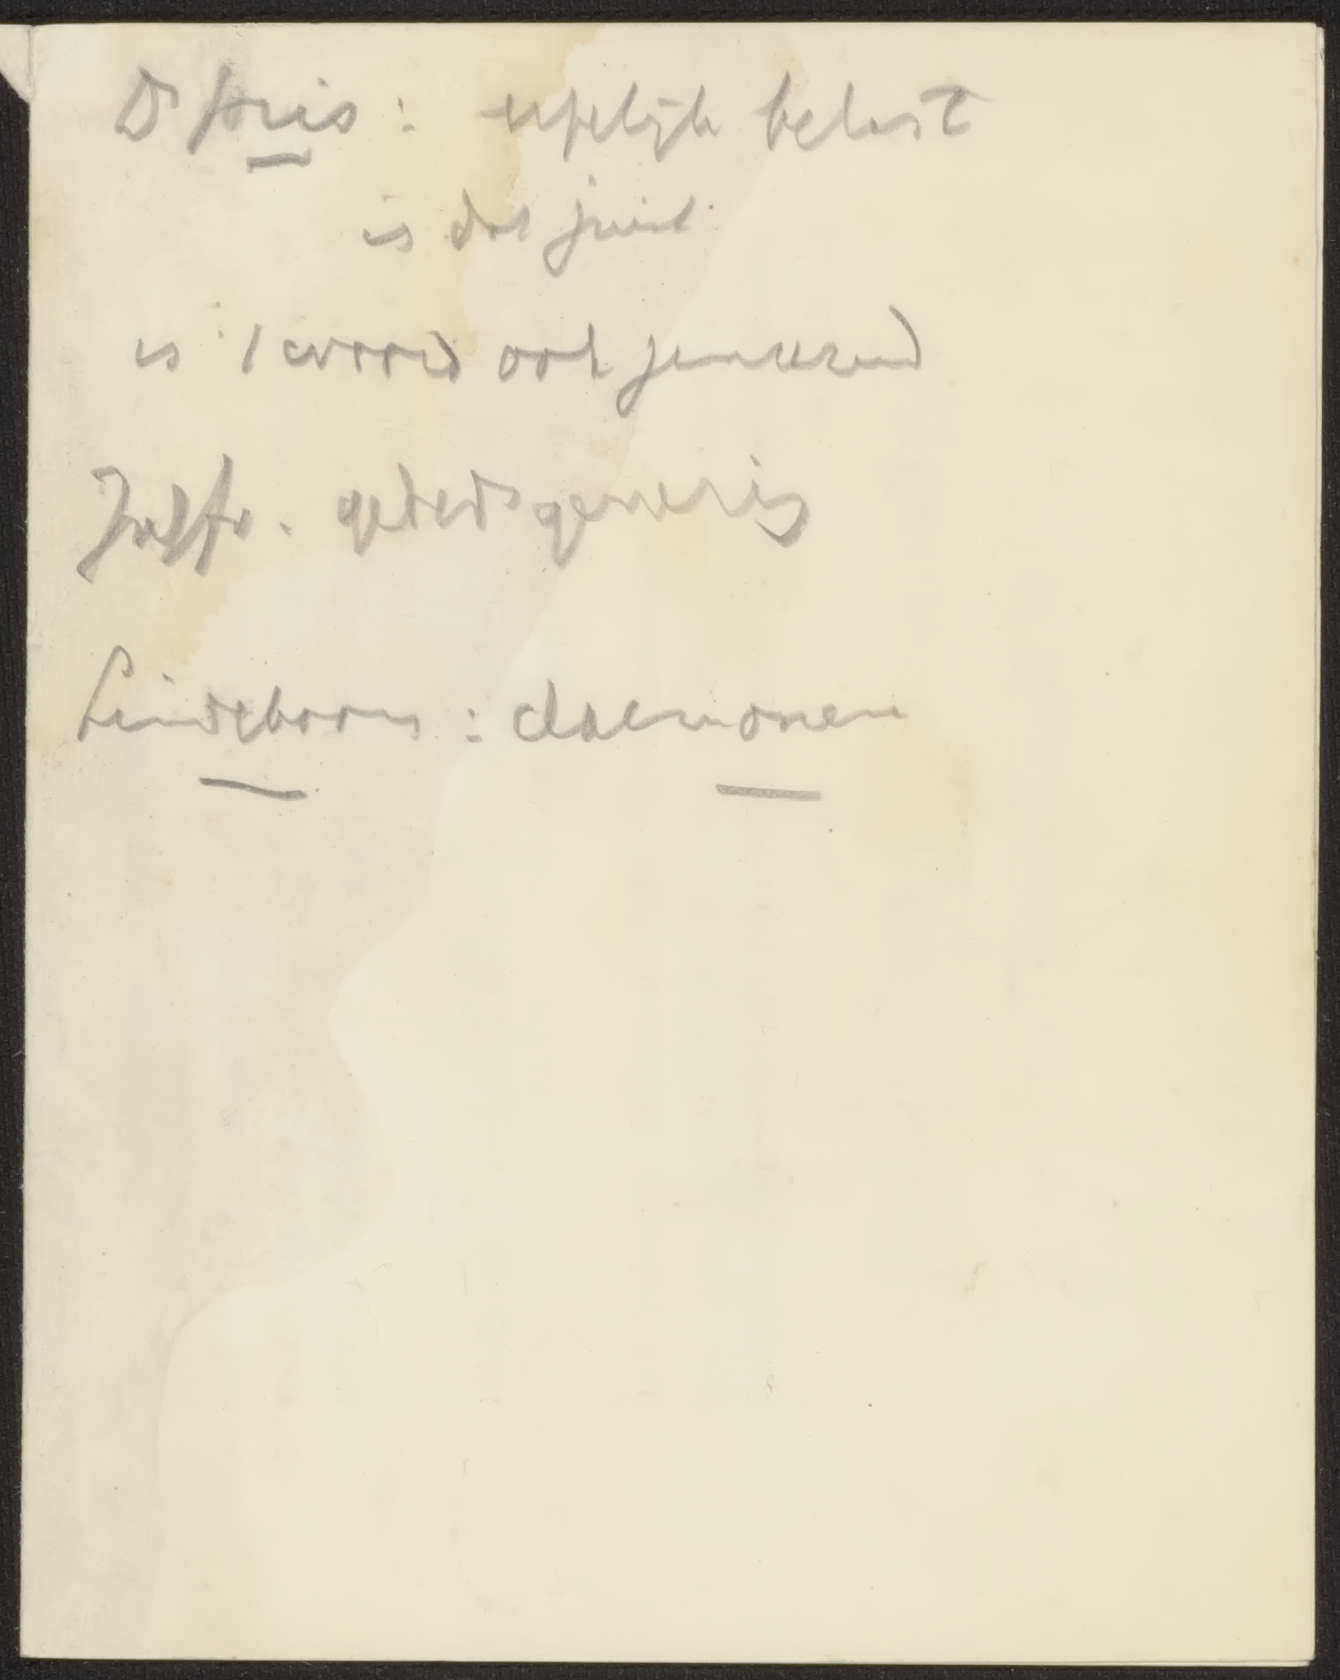 Dr Jris : erfelijk belast
is dat juist
is 't woord ook
gebedsgenezing
Lindeboom : daemonen